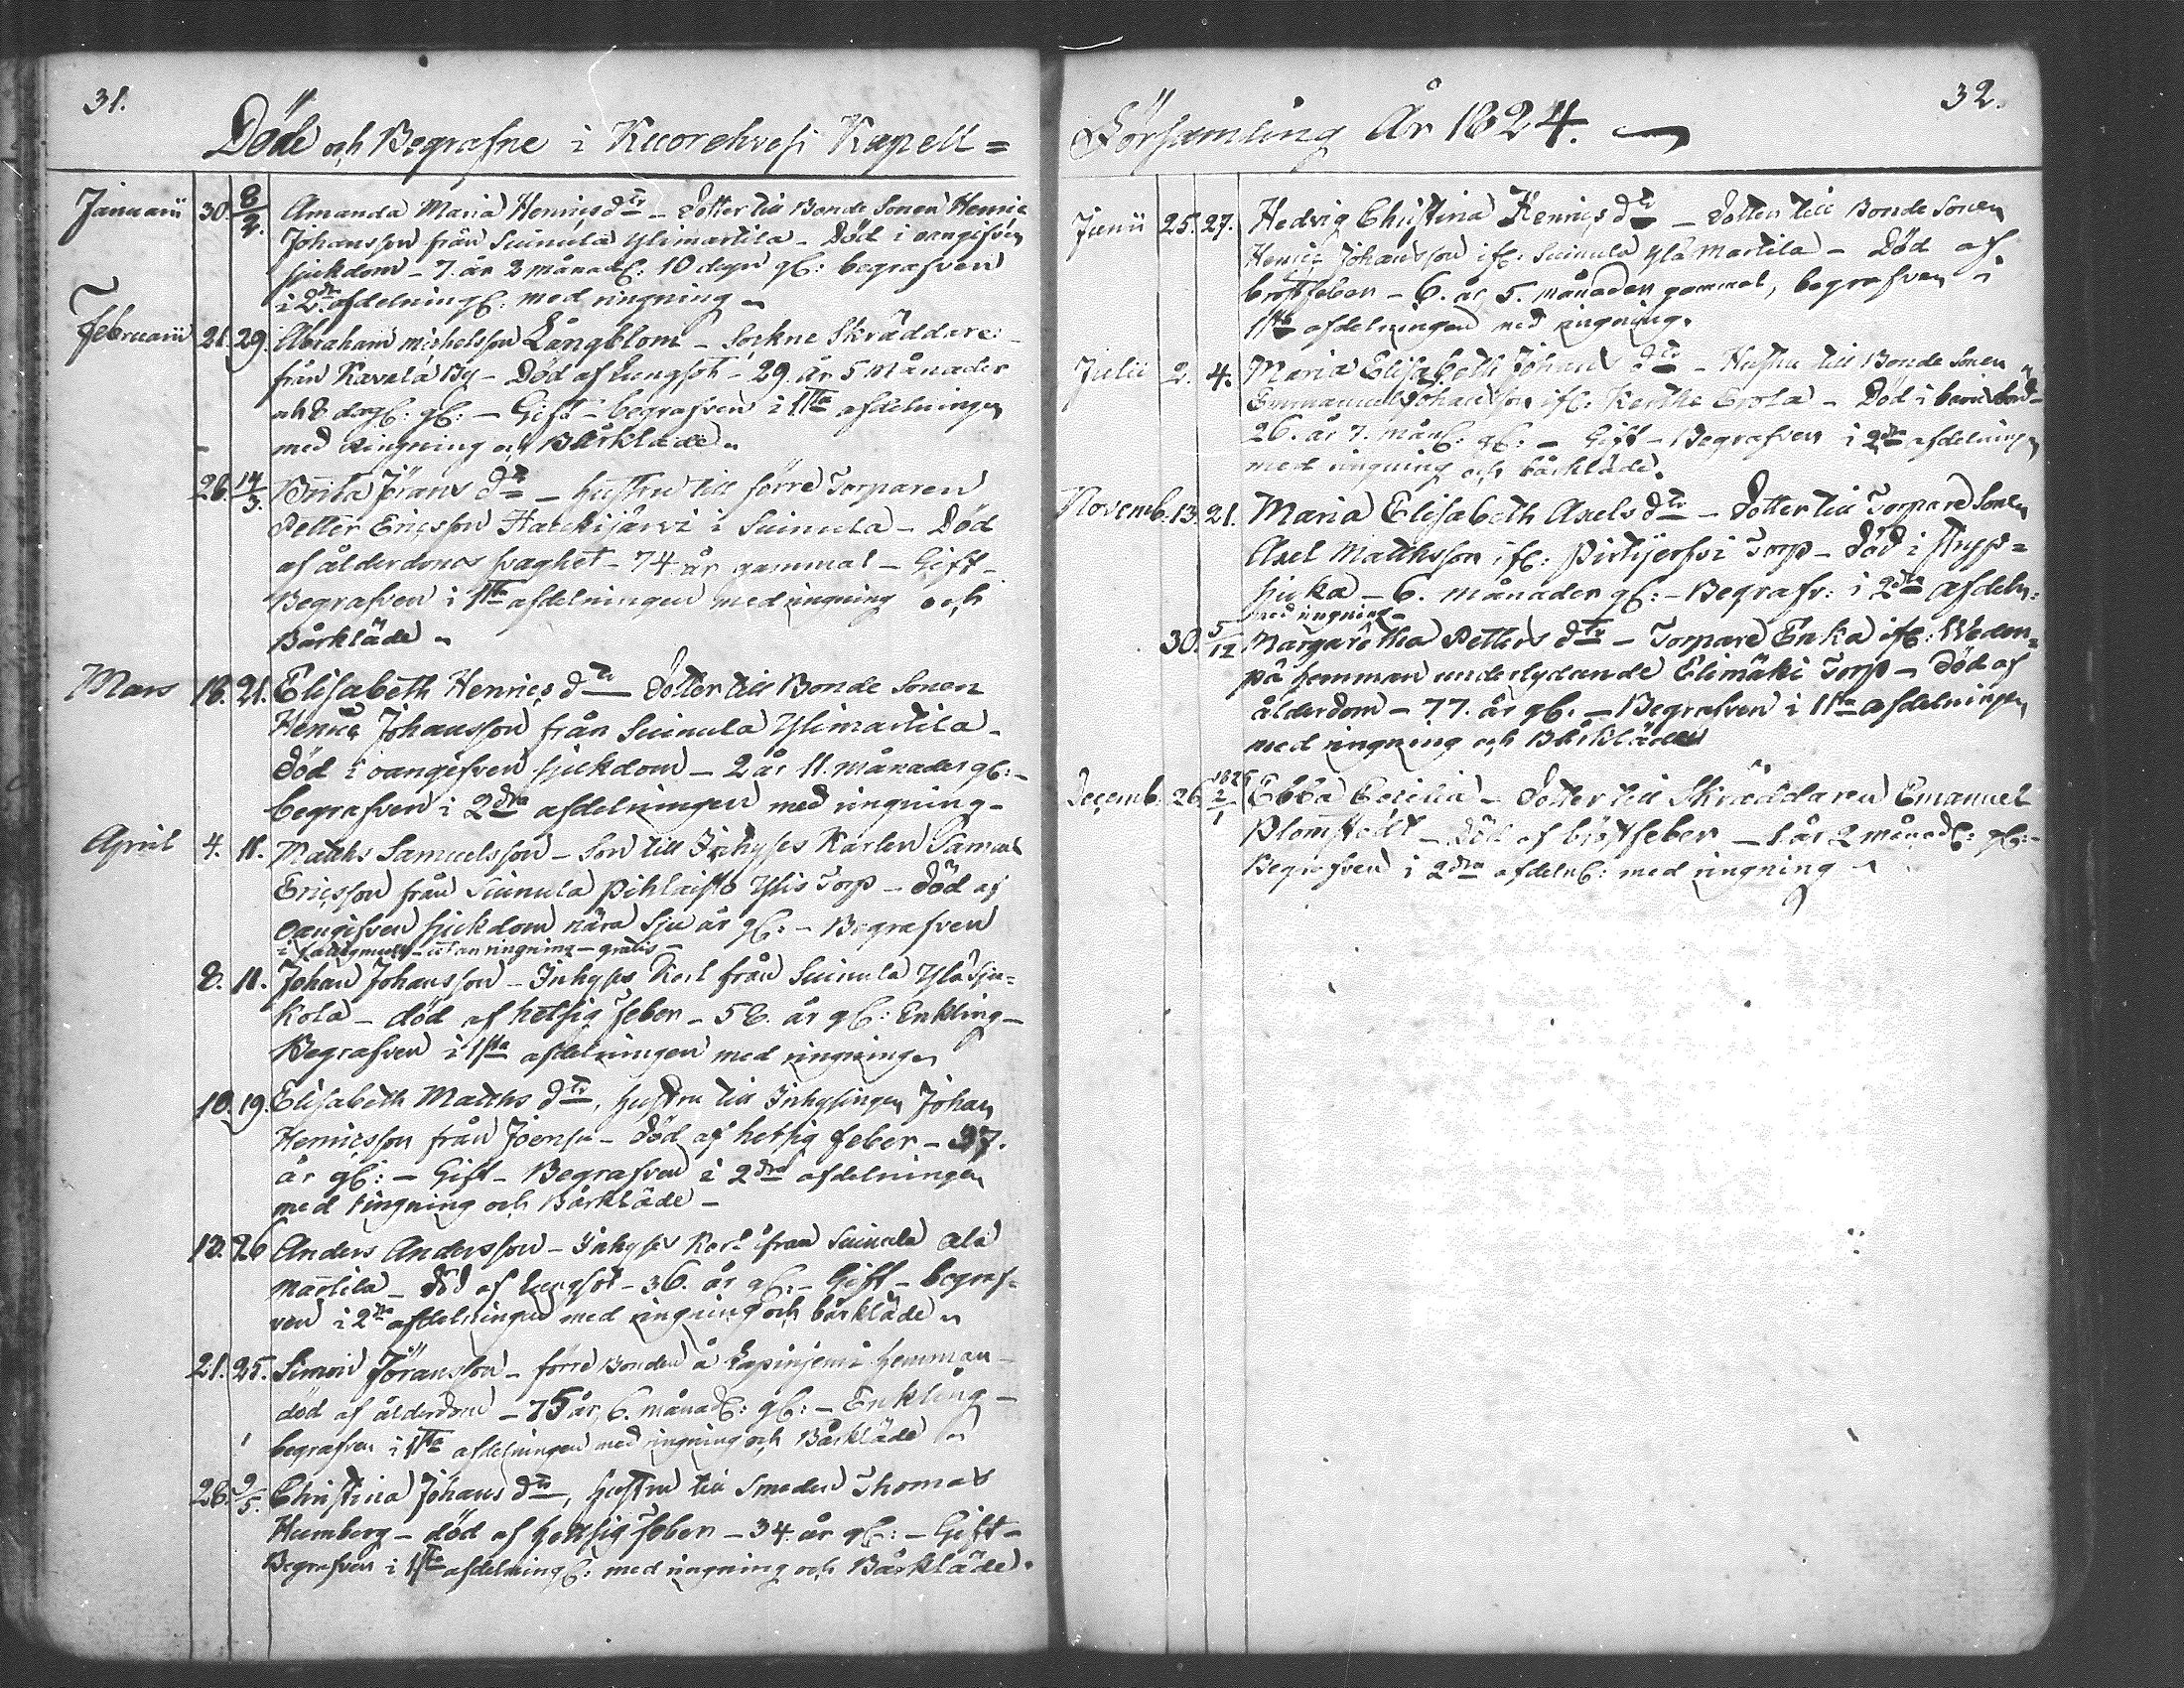 31.
Döde och Begrafne i Kuorehvesi Kapell=
Januarii 30. 8/2. Amanda Maria Henrics dtr – Dotter till Bonde Sonen Henric
Johansson från Suinula Ylimartila – Död i oangifven
sjukdom – 7. år 3 månad: 10 dagar gl: begrafven
i 2dra afdelning: med ringning –
Februarii 21. 29. Abraham Michelsson Långblom – Sockne Skräddare
från Kavala By – Död af Lungsot – 29. år 5 Månader
och 8 dag: gl: – Gift – begrafven i 1sta afdelningen
med Ringning och Bårkläde –
28. 14/3. Brita Jörans dtr – hustru till förre Torparen
Petter Ericsson Haukijärvi i Suinula – Död
af ålderdoms svaghet – 74 år gammal – Gift –
Begrafven i 1sta afdelningen med ringning och
Bårkläde –
Mars 18. 21. Elisabeth Henrics dtr – Dotter till Bonde Sonen
Henric Johansson från Suinula Ylimartila –
Död i oangifven sjukdom – 2 år 11. månader gl: –
begrafven i 2dra afdelningen med ringning –
April 4. 11. Matths Samuelsson – Son till Inhyses Karlen Samuel
Ericsson från Suinula Pihlaisto Ylis Torp – Död af
oangifven sjukdom nära sju år gl: – Begrafven
i – utan ringning – gratis –
8. 11. Johan Johansson – Inhyses Karl från Suinula Ylä Sju=
kola – död af hetsig feber – 58. år gl: Enkling –
Begrafven i 1sta afdelningen med ringning
10. 19. Elisabeth Matths dtr, hustru till Inhysingen Johan
Henricsson från Joensu – Död af hetsig feber – 37.
år gl: – Gift – Begrafven i 2dra afdelningen
med ringning och Bårkläde –
13. 26 Anders Andersson – Inhyses Karl ifrån Suinula Ala
Martila – Död af Lungsot – 36. år gl: – Gift – begraf=
ven i 2dra afdelningen med ringning och bårkläde
21. 25. Simon Jöransson – förre Bonden å Lapinjemi hemman –
död af ålderdom – 75 år, 6. månad: gl: – Enkling –
begrafven i 1sta afdelningen med ringning och Bårkläde
28. 9/5. Christina Johans dtr, hustru till Smeden Thomas
Humberg – död af hetsig feber – 34. år gl: – Gift –
Begrafven i 1sta afdelning: med ringning och Bårkläde.
32.
Församling År 1824.
Junii 25. 27. Hedvig Christina Henrics dtr – Dotter till Bonde Sonen
Henric Johansson if: Suinula Ylä Martila – Död af
bröstfeber – 6. år 5. månader gammal, begrafven i
1sta afdelningen med ringning.
Julii 2. 4. Maria Elisabeth Johans dtr – Hustru till Bonde Sonen
Emmanuel Johansson if: Kerthe Erola – Död i barnsbörd –
26. år 7. mån: gl: – Gift – Begrafven i 2dra afdelningen
med ringning och bårkläde.
Novemb. 13. 21. Maria Elisabeth Axels dtr – Dotter till Torpare Sonen
Axel Matthsson if: Pirttijerfvi Torp – Död i stryp=
sjuka – 6. månader gl: – Begrafv: i 2dra afdeln:
med ringning –
30. 5/12 Margaretha Petters dtr – Torpare Enka if: Weden=
på hemman underlydande Elimäki Torp – Död af
ålderdom – 77. år gl. – Begrafven i 1sta afdelningen
med ringning och Bårkläde
Decemb. 26. 1825 2/1 Ebba Cecilia – Dotter till Skräddaren Emanuel
Blomfeldt – Död af bröstfeber – 1. år 2 månad: gl: –
Begrafven i 2dra afdeln: med ringning –